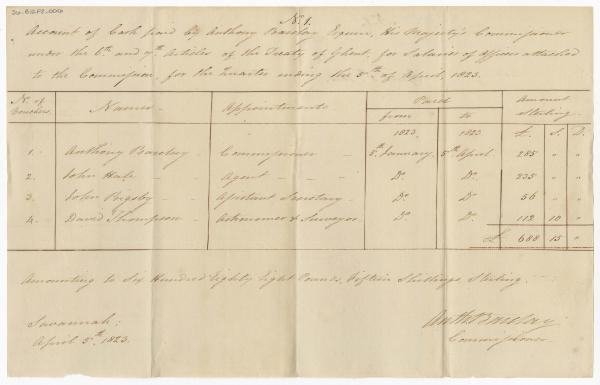 No. 1.
Account of Cash paid by Anthony Barclay Esquire, His Majesty's Commissioner
under the 6th and 7th Articles of the Treaty of Ghent, for Salaries of Officers attached
to the Commission, for the Quarter ending the 5th of April, 1823.
No. of Vouchers. Names Appointments Period Amount Sterling.
from to
1823 1823 £. S. D.
1. Anthony Barclay Commissioner 5th January. 5th April 285 " "
2. John Hale Agent Do. Do. 235 " "
3. John Bigsby Assistant Secretary Do. Do. 56 " "
4. David Thompson Astronomer & Surveyor Do. Do. 112 10 "
£ 688 15 "
Amounting to Six Hundred Eighty Eight Pounds, Fifteen Shillings, Sterling.
Savannah;
April 5th. 1823.
Anth. Barclay
Commissioner